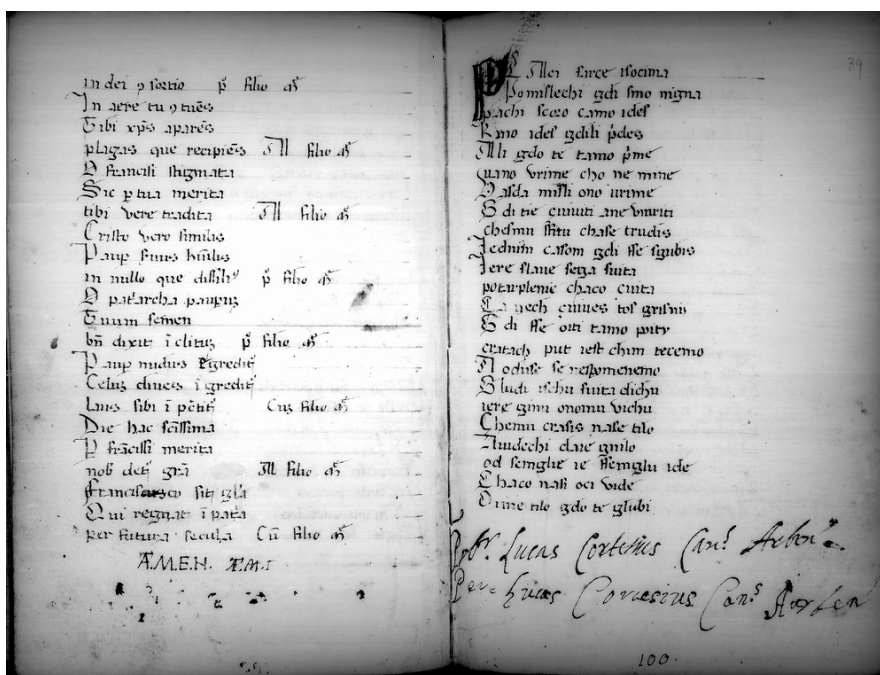 in dei ꝯsortio p̄ filio
In aere tu ꝯtues
Tibi xp̄s apares
plagas que recipies filio
O francisi stigmata
Sic p tua merita
tibi vere tradita filio
Cristo vero similis
Paup huilis
in nullo que dissilis p̄ filio
O patarcha paupuz
Tuum semen
bn̄ dixit i clituz p̄ filio
Paup nudus egredit
Celuz dives i gredit
Laus sibi i filio
Die hac scissima
P francissi merita
nob det grā filio
sit gla
Qui regnat i
per futura secula Cū filio
ÆM.E.N. ÆM.
39
sarce isocima
Pomislechi gdi smo migna
pachi scoro camo ides
Kmo ides gdili pdes
Ali gdo te tamo pme
uano vrime cho ne mine
Vasda misli ono urime
G di tie ciuiuti ane vmriti
chesmu stitu chase trudis
Iednim casom gdi sse sgubis
Iere slaue sega suita
potarplenie chaco cuita
Ca nech ciuiues
G di sse oiti tamo poity
cratach put iest chim tecemo
N oduse se respomenemo
B ludi ischu suita dichu
iere ginu onomu vichu
Chemu crasis nase tilo
Auidechi daie gnilo
od semglie ie ssemglu ide
Chaco nasi oci vide
O ime tilo gdo te glubi
Lucas Cortesius Can.s Arben
Lucas Corcesius Can.s Arben
100